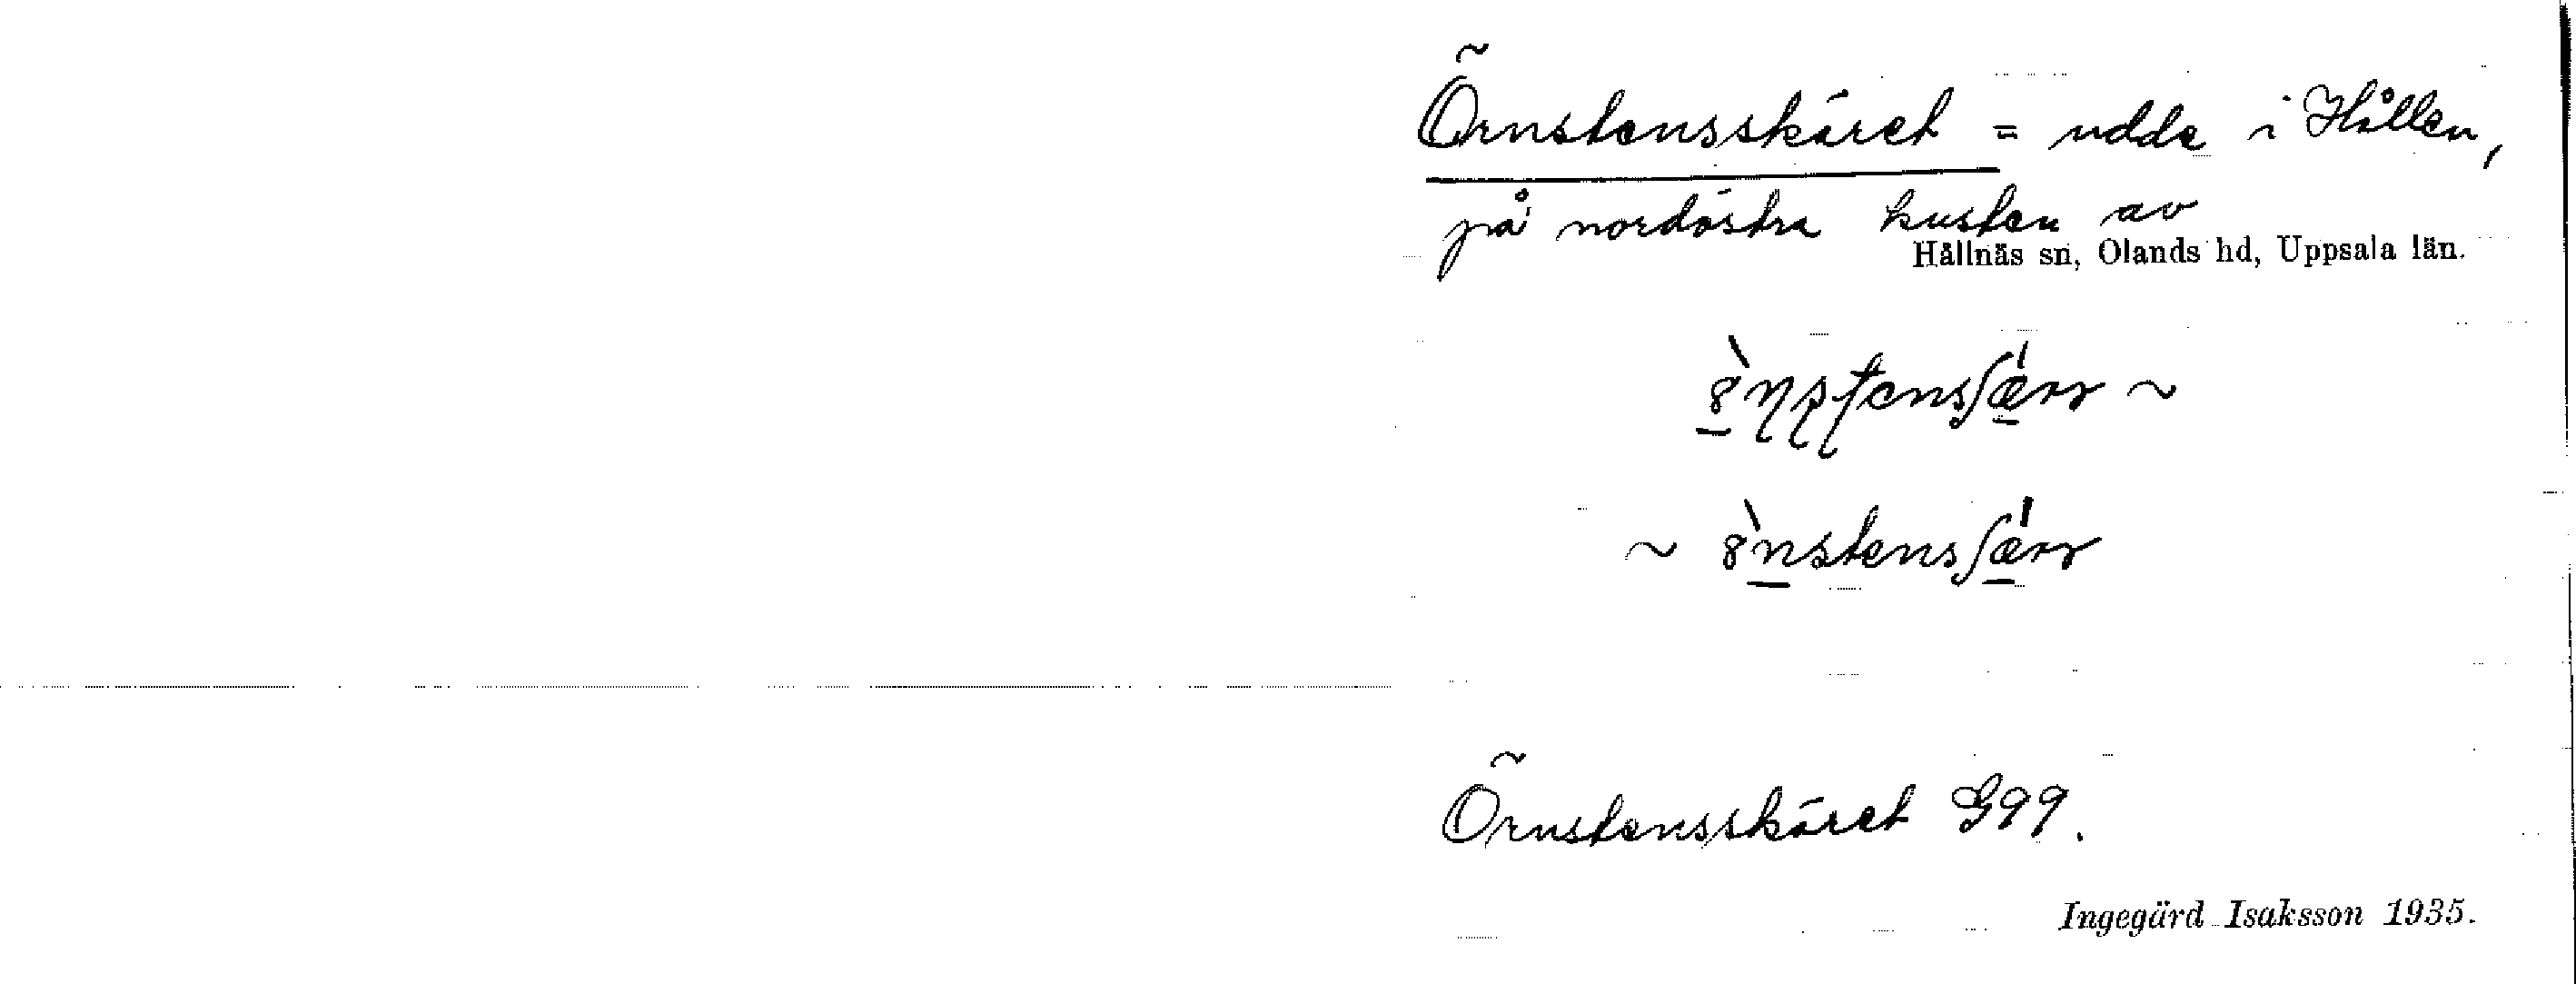 Örnstensskäret = udde i Hållen,
på nordöstra kusten av
Hållnäs sn, Olands hd, Uppsala län.
Örnstensskäret G99.
Ingegärd Isaksson 1935.